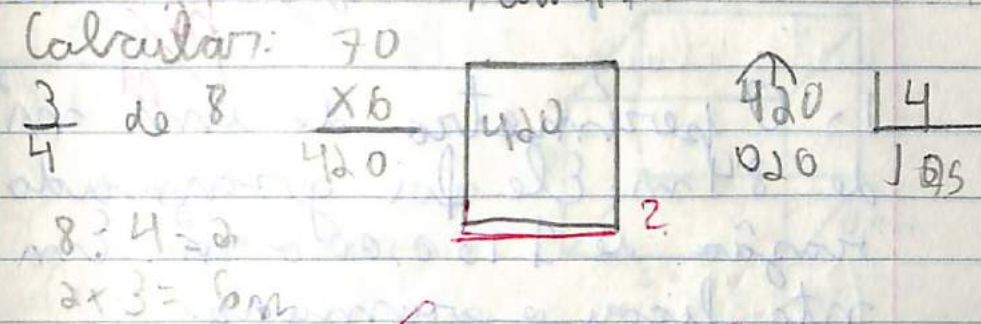 Calcular: 70
3/4 de 8 x6 420 420 4
420 020 105
?
8:4=2
2x3=6m